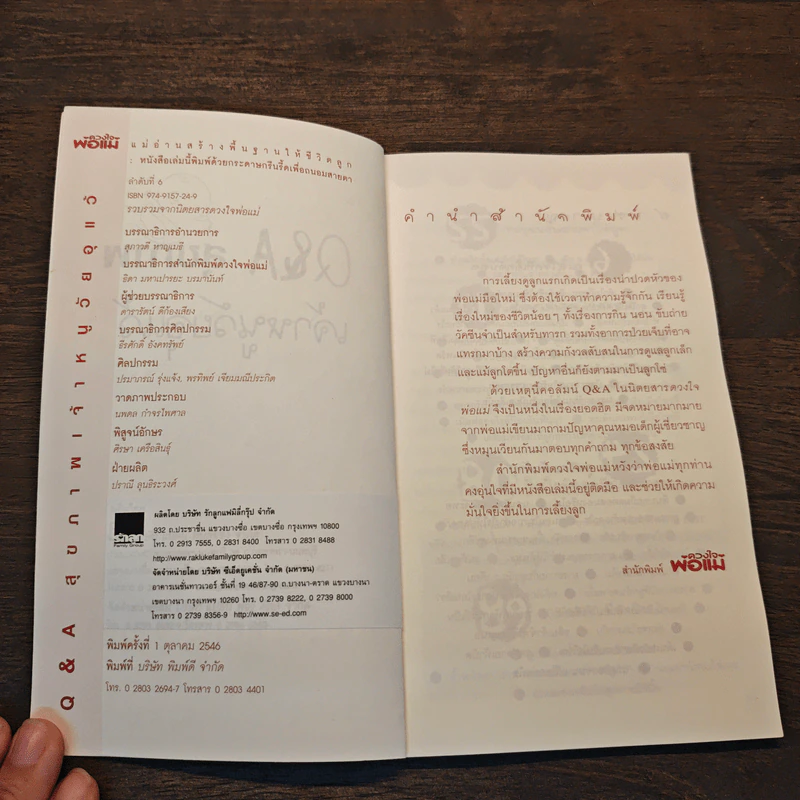 ดวงใจ
พ่อแม่
แม่อ่านสร้างพื้นฐานให้ชีวิตลูก
: หนังสือเล่มนี้พิมพ์ด้วยกระดาษกรีนรี้ดเพื่อถนอมสายตา
ลำดับที่ 6
ISBN 974-9157-24-9
รวบรวมจากนิตยสารดวงใจพ่อแม่
บรรณาธิการอำนวยการ
สุภาวดี หาญเมธี
บรรณาธิการสำนักพิมพ์ดวงใจพ่อแม่
ธิดา มหาเปารยะ บรมานันท์
ผู้ช่วยบรรณาธิการ
ดารารัตน์ ตีก้องเสียง
บรรณาธิการศิลปกรรม
ธีรศักดิ์ อังคทรัพย์
ศิลปกรรม
ปรมาภรณ์ รุ่งแจ้ง, พรทิพย์ เจียมมณีประกิต
วาดภาพประกอบ
นพดล กำจรไพศาล
พิสูจน์อักษร
ศิรษา เครือสินธุ์
ฝ่ายผลิต
ปราณี ลุนธิระวงศ์
รักลูก
Family Group
ผลิตโดย บริษัท รักลูกแฟมิลี่กรุ๊ป จำกัด
932 ถ.ประชาชื่น แขวงบางซื่อ เขตบางซื่อ กรุงเทพฯ 10800
โทร. 0 2913 7555, 0 2831 8400 โทรสาร 0 2831 8488
http://www.raklukefamilygroup.com
จัดจำหน่ายโดย บริษัท ซีเอ็ดยูเคชั่น จำกัด (มหาชน)
อาคารเนชั่นทาวเวอร์ ชั้นที่ 19 46/87-90 ถ.บางนา-ตราด แขวงบางนา
เขตบางนา กรุงเทพฯ 10260 โทร. 0 2739 8222, 0 2739 8000
โทรสาร 0 2739 8356-9 http://www.se-ed.com
พิมพ์ครั้งที่ 1 ตุลาคม 2546
พิมพ์ที่ บริษัท พิมพ์ดี จำกัด
โทร. 0 2803 2694-7 โทรสาร 0 2803 4401
Q & A สุขภาพเจ้าหนูวัยจุ๋มแจ๋ว
คำนำสำนักพิมพ์
การเลี้ยงดูลูกแรกเกิดเป็นเรื่องน่าปวดหัวของ
พ่อแม่มือใหม่ ซึ่งต้องใช้เวลาทำความรู้จักกัน เรียนรู้
เรื่องใหม่ของชีวิตน้อยๆ ทั้งเรื่องการกิน นอน ขับถ่าย
วัคซีนจำเป็นสำหรับทารก รวมทั้งอาการป่วยเจ็บที่อาจ
แทรกมาบ้าง สร้างความกังวลสับสนในการดูแลลูกเล็ก
และแม้ลูกโตขึ้น ปัญหาอื่นก็ยังตามมาเป็นลูกโซ่
ด้วยเหตุนี้คอลัมน์ Q&A ในนิตยสารดวงใจ
พ่อแม่ จึงเป็นหนึ่งในเรื่องยอดฮิต มีจดหมายมากมาย
จากพ่อแม่เขียนมาถามปัญหาคุณหมอเด็กผู้เชี่ยวชาญ
ซึ่งหมุนเวียนกันมาตอบทุกคำถาม ทุกข้อสงสัย
สำนักพิมพ์ดวงใจพ่อแม่หวังว่าพ่อแม่ทุกท่าน
คงอุ่นใจที่มีหนังสือเล่มนี้อยู่ติดมือ และช่วยให้เกิดความ
มั่นใจยิ่งขึ้นในการเลี้ยงลูก
สำนักพิมพ์ ดวงใจพ่อแม่